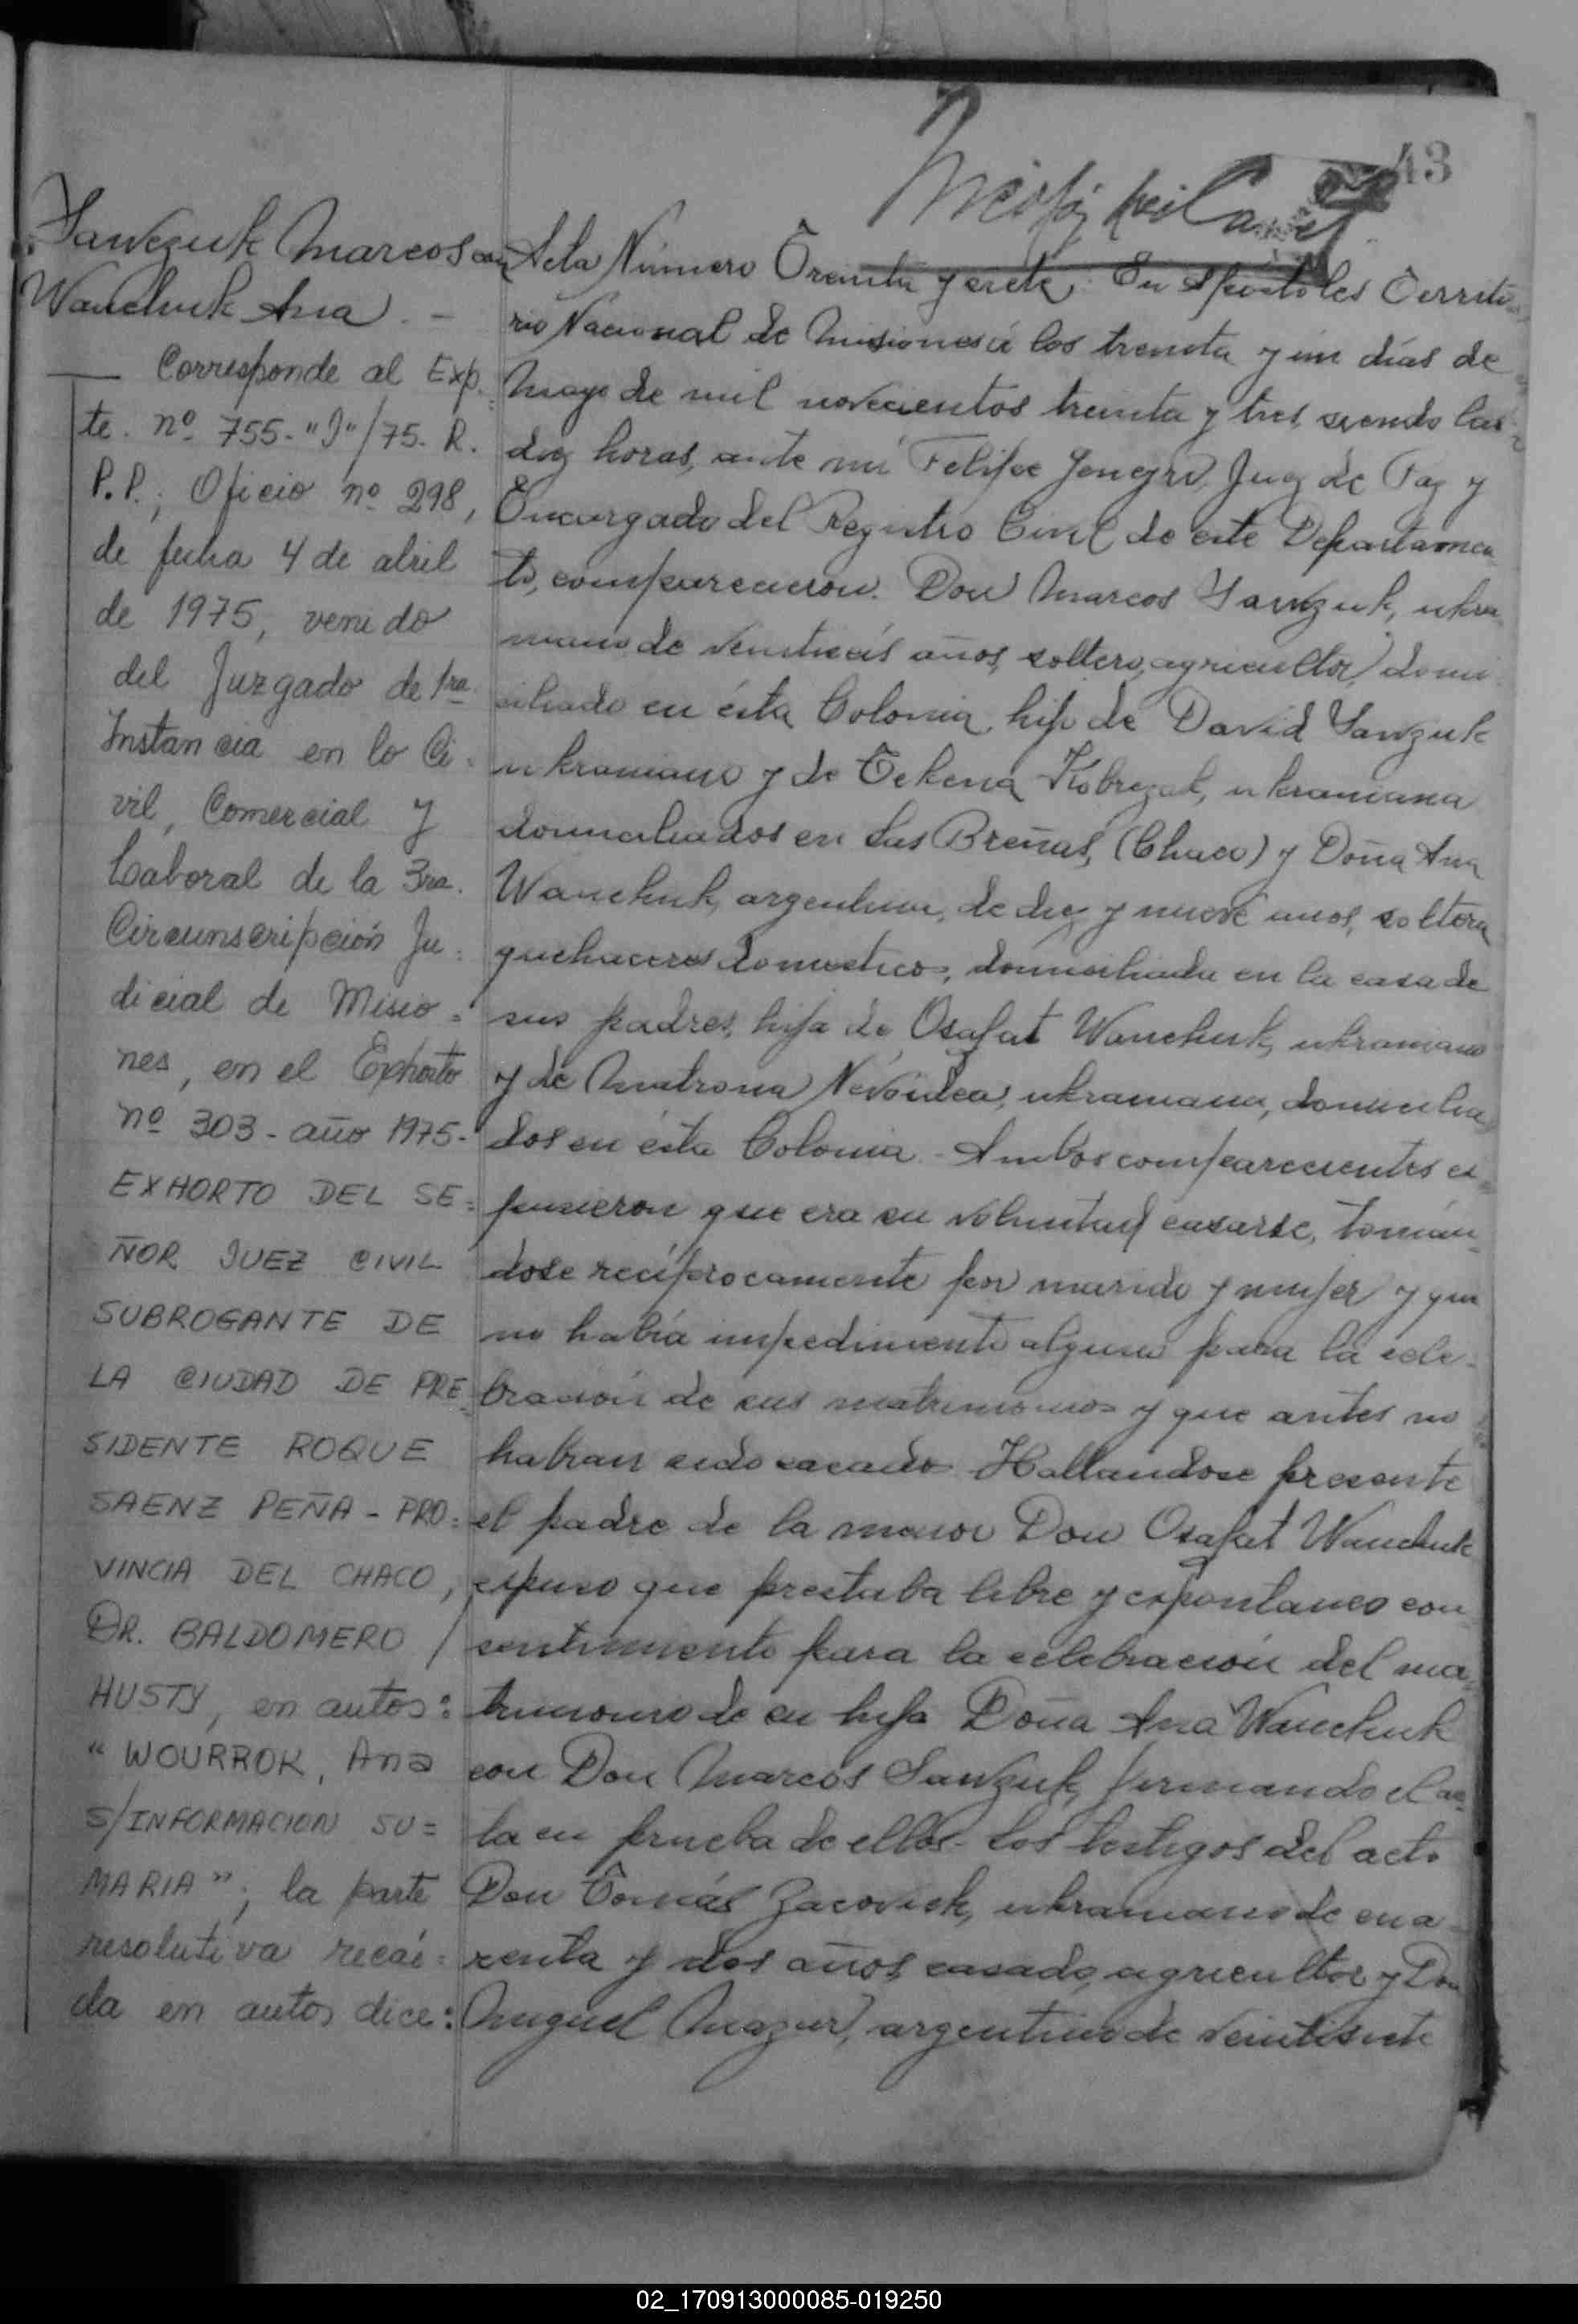 43
Sawczuk Marcos con
Wanchuk Ana. -
Corresponde al Exp
te. nº 755-"J"/75. R.
P.P.; Oficio nº 298,
de fecha 4 de abril
de 1975, venido
del Juzgado de 1ra.
Instancia en lo Ci=
vil, Comercial y
Laboral de la 3ra.
Circunscripción Ju=
dicial de Misio=
nes, en el Exhorto
nº 303-año 1975-
EXHORTO DEL SE=
ÑOR JUEZ CIVIL
SUBROGANTE DE
LA CIUDAD DE PRE=
SIDENTE ROQUE
SAENZ PEÑA - PRO=
VINCIA DEL CHACO,
DR. BALDOMERO /
HUSTY, en autos:
"WOURROK, Ana
S/INFORMACION SU=
MARIA"; la parte
resolutiva recaí=
da en autos dice:
Acta Número Treinta y siete. En Apóstoles Territo
rio Nacional de Misiones á los treinta y un días de
Mayo de mil novecientos treinta y tres, siendo las
diez horas, ante mí Felipe Juez de Paz y
Encargado del Registro Civil de este Departamen
to, comparecieron. Don Marcos Sawzuk, ukra
niano de veintiseis años, soltero, agricultor, domi
ciliado en ésta Colonia, hijo de David Sawzuk
ukraniano y de Tekena ukraniana
domiciliados en Las Breñas, (Chaco) y Doña Ana
Wanchuk, argentina, de diez y nueve años, soltera
quehaceres domesticos, domiciliada en la casa de
sus padres, hija de Osafat Wanchuk, ukraniano
y de Matrona ukraniana, domicilia
dos en ésta Colonia. - Ambos comparecientes es
pusieron que era su voluntad casarse, tomán
dose recíprocamente por marido y mujer y que
no había impedimento alguno para la cele-
bración de sus matrimonios y que antes no
habían sido casado. Hallandose presente
el padre de la menor Don Osafat Wanchuk
espuso que prestaba libre y espontaneo con
sentimiento para la celebración del ma
trimonio de su hija Doña Ana Wanchuk
con Don Marcos Sawzuk, firmando el ac
ta en prueba de ellos. Los testigos del acto
Don Tomás Zacovick, ukraniano de cua
renta y dos años, casado, agricultor y Don
Miguel Mazur, argentino de veintisiete
02_170913000085-019250